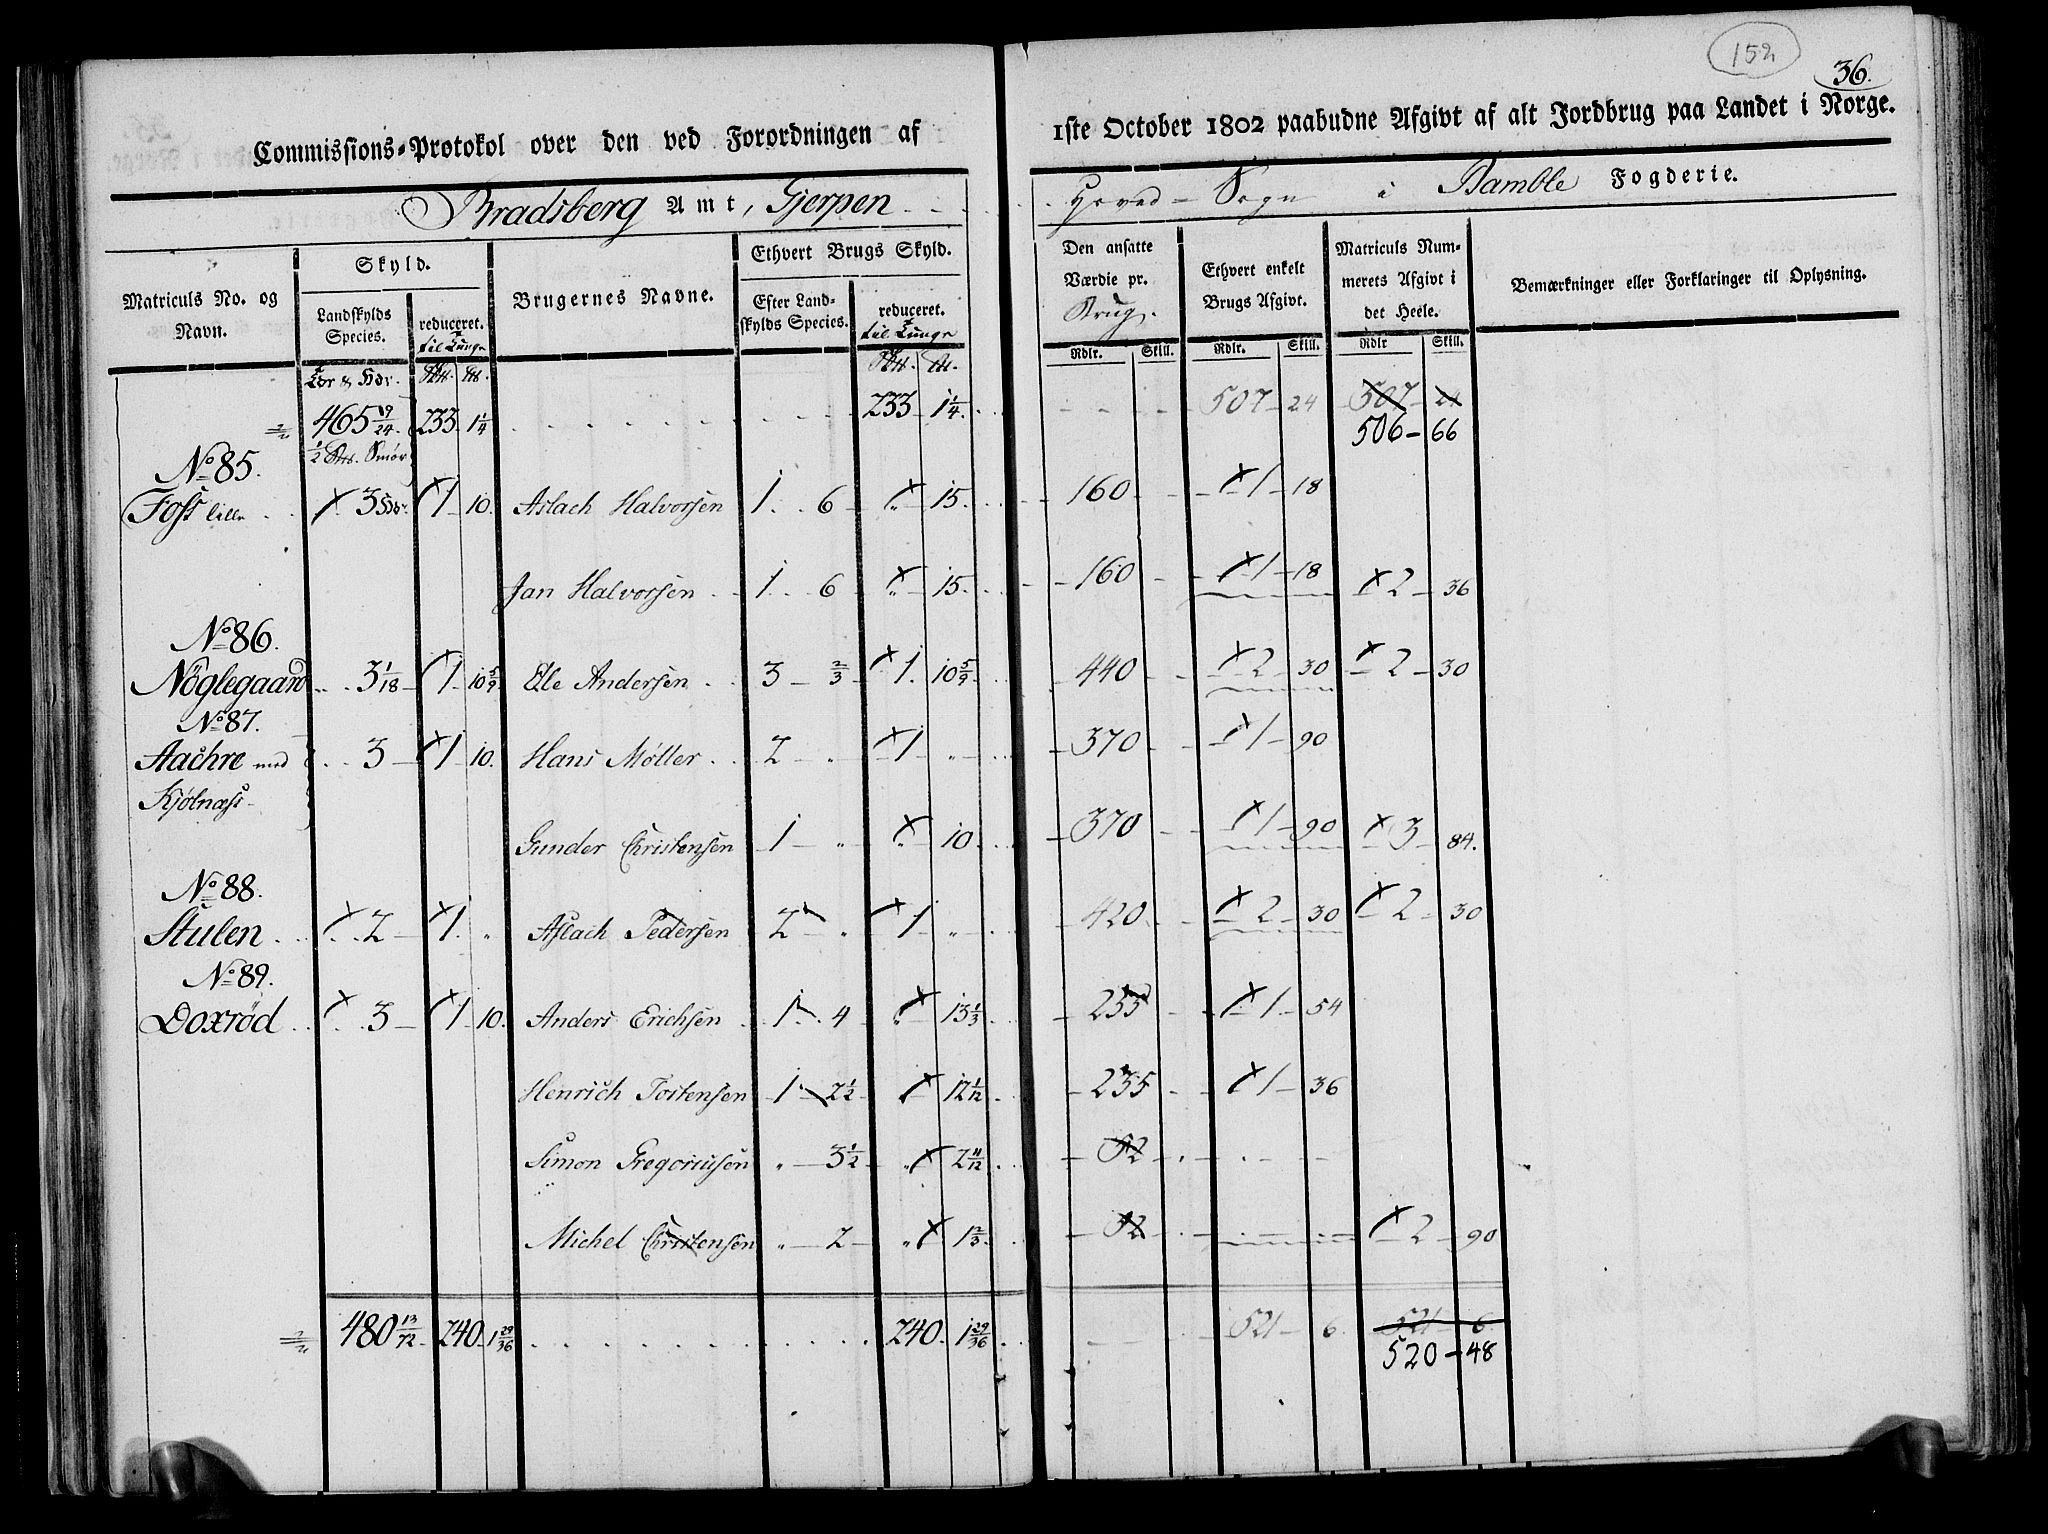 152
36.
Commissions-Protokol over den ved Forordningen af 1ste October 1802 paabudne Afgivt af alt Jordbrug paa Landet i Norge.
Bradsberg Amt, Gjerpen Hoved-Sogn i Bamble Fogderie.
Matriculs No. og Navn.
Skyld.
Landskylds Species.
reduceret. til Tunge
Brugernes Navne.
Ethvert Brugs Skyld.
Efter Landskylds Species.
reduceret. til Tunge
Den ansatte Værdie pr. Brug.
Ethvert enkelt Brugs Afgivt.
Matriculs Nummerets Afgivt i det Heele.
Bemærkninger eller Forklaringer til Oplysning.
Rdlr. Skill. Rdlr. Skill. Rdlr Skill.
465 9/24. 233 1 1/4 233 1 1/4. 507 24 507 24
506 66
1/2 Smør
No 85.
Foss lille 3 1 10. Aslach Halvorsen 1 6 " 15 160 1 18
Jan Halvorsen 1 6 " 15 160 1 18 2 36
No 86.
Nöglegaard 3 1/18 1 10 5/9 Ole Andersen 3 2/3 1. 10 5/9 440 2 30 2 30
No 87.
Aachre med 3 1 10. Hans Møller 2 " 1 " 370 1 90
Kjölnæss
Gunder Christensen 1 " " 10 370 1 90 3 84.
No 88.
Stulen 2 1. " Aslach Pedersen 2 " 1 " 420 2 30 2 30
No 89.
Doxröd 3 1 10. Anders Erichsen 1 4 " 13 1/3 255 1 54
Henrich Tostensen 1 2 1/2 12 1/12 235 1 36
Simon Gregoriusen " 3 1/2 " 2 11/12 52
Michel Christensen " 2 " 1 2/3 52 2 90
480 13/72 240 1 29/36 240 1 29/36 521 6. 521 6
520 48